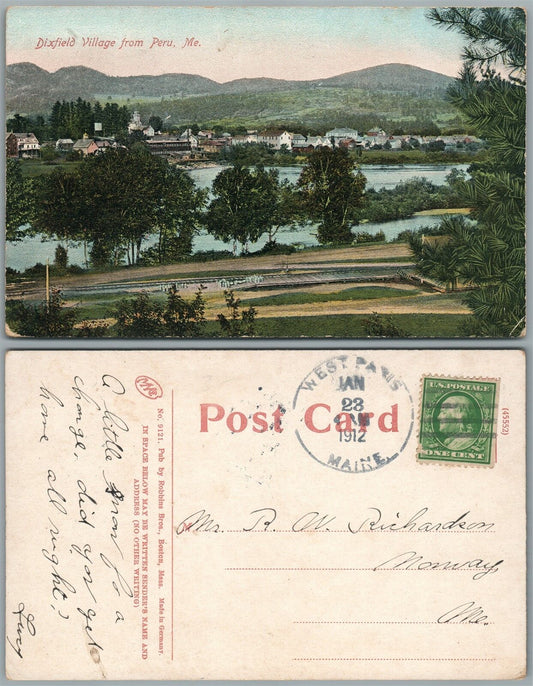 Dixfield Village from Peru, Me.
A little snow for a
change. did you get
home all right?
Lucy
No. 9121. Pub by Robbins Bros., Boston, Mass. Made in Germany.
IN SPACE BELOW MAY BE WRITTEN SENDER'S NAME AND
ADDRESS (NO OTHER WRITING)
Post Card
WEST PARIS
JAN
23
1912
MAINE.
U.S. POSTAGE
ONE CENT
(45552)
Mr. R. W. Richardson
Norway
Me.